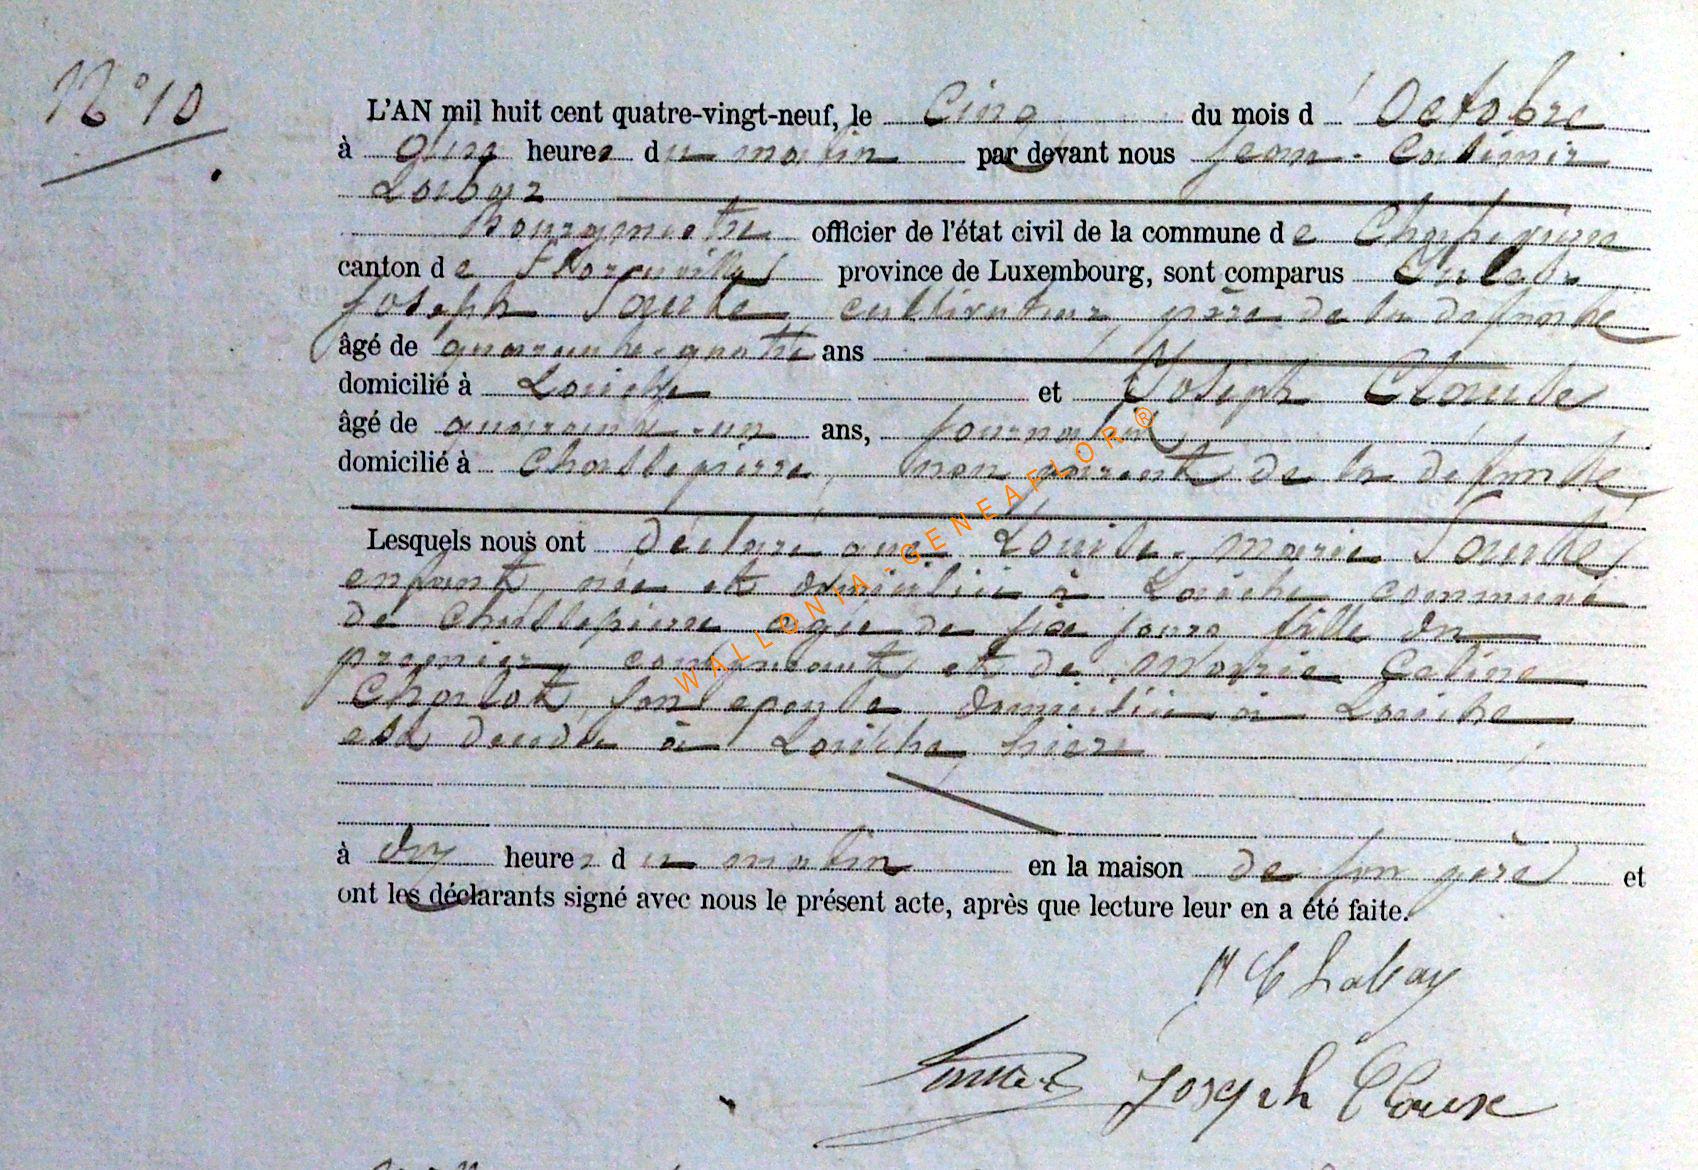 N° 10
L'AN mil huit cent quatre-vingt-neuf, le Cinq du mois d' Octobre
à heures du matin par devant nous Jean-Casimir
Bourgmestre officier de l'état civil de la commune de Chassepierre
canton de Florenville province de Luxembourg, sont comparus
Joseph cultivateur, père de la défunte
âgé de quarante-quatre ans
domicilié à Laiche et Joseph Clause
âgé de quarante-un ans, journalier
domicilié à Chassepierre, non parent de la défunte
Lesquels nous ont déclaré que Louise-Marie
enfant, née et domiciliée à Laiche commune
de Chassepierre agée de six jours fille du
premier comparant et de Marie Céline
Charlot, son épouse domiciliée à Laiche
est décédée à Laiche, hier
à dix heures du matin en la maison de son père et
ont les déclarants signé avec nous le présent acte, après que lecture leur en a été faite.
Joseph Clause
WALLONIA-GENEAFLOR®